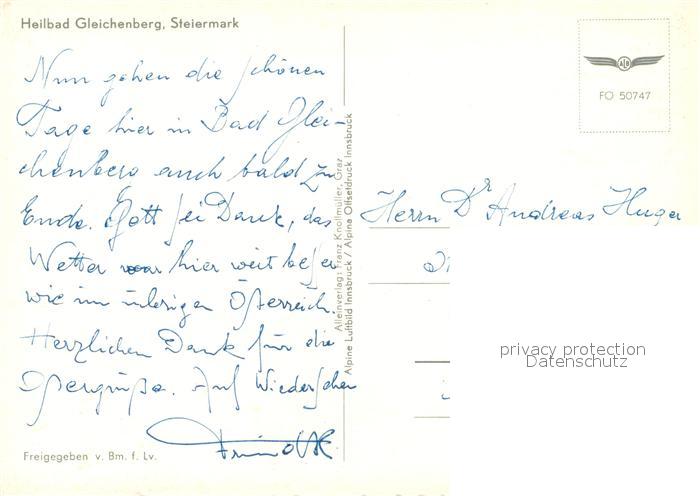 Heilbad Gleichenberg, Steiermark
Nun gehen die schönen
Tage hier in Bad Glei-
chenberg auch bald zu
Ende. Gott sei Dank, das
Wetter war hier weit besser
wie im übrigen Österreich.
Herzlichen Dank für die
Ostergrüße. Auf Wiedersehen
Freigegeben v. Bm. f. Lv.
Alleinverlag: Franz Knollmüller, Graz
Alpine Luftbild Innsbruck / Alpine Offsetdruck Innsbruck
AID
FO 50747
Herrn Dr Andreas Huger
privacy protection
Datenschutz